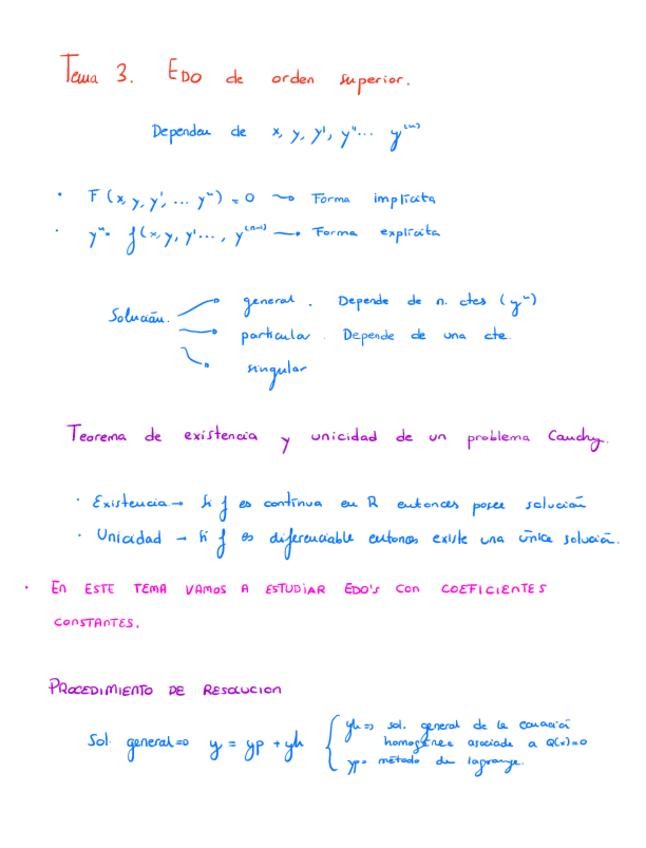 Tema 3. EDO de orden superior.
Dependen de x, y, y', y''... y^(n)
· F(x, y, y', ... yⁿ) = 0 → Forma implícita
· yⁿ = f(x, y, y'..., y^(n-1)) → Forma explícita
Solución. → general. Depende de n. ctes (yⁿ)
→ particular. Depende de una cte.
→ singular
Teorema de existencia y unicidad de un problema Cauchy.
· Existencia → Si f es continua en R entonces posee solución
· Unicidad → Si f es diferenciable entonces existe una única solución.
· En ESTE TEMA VAMOS A ESTUDIAR EDO's CON COEFICIENTES
CONSTANTES.
PROCEDIMIENTO DE RESOLUCION
Sol general ⇒ y = yp + yh { yh ⇒ sol. general de la ecuación
homogénea asociada a Q(x)=0
yp ⇒ método de lagrange.